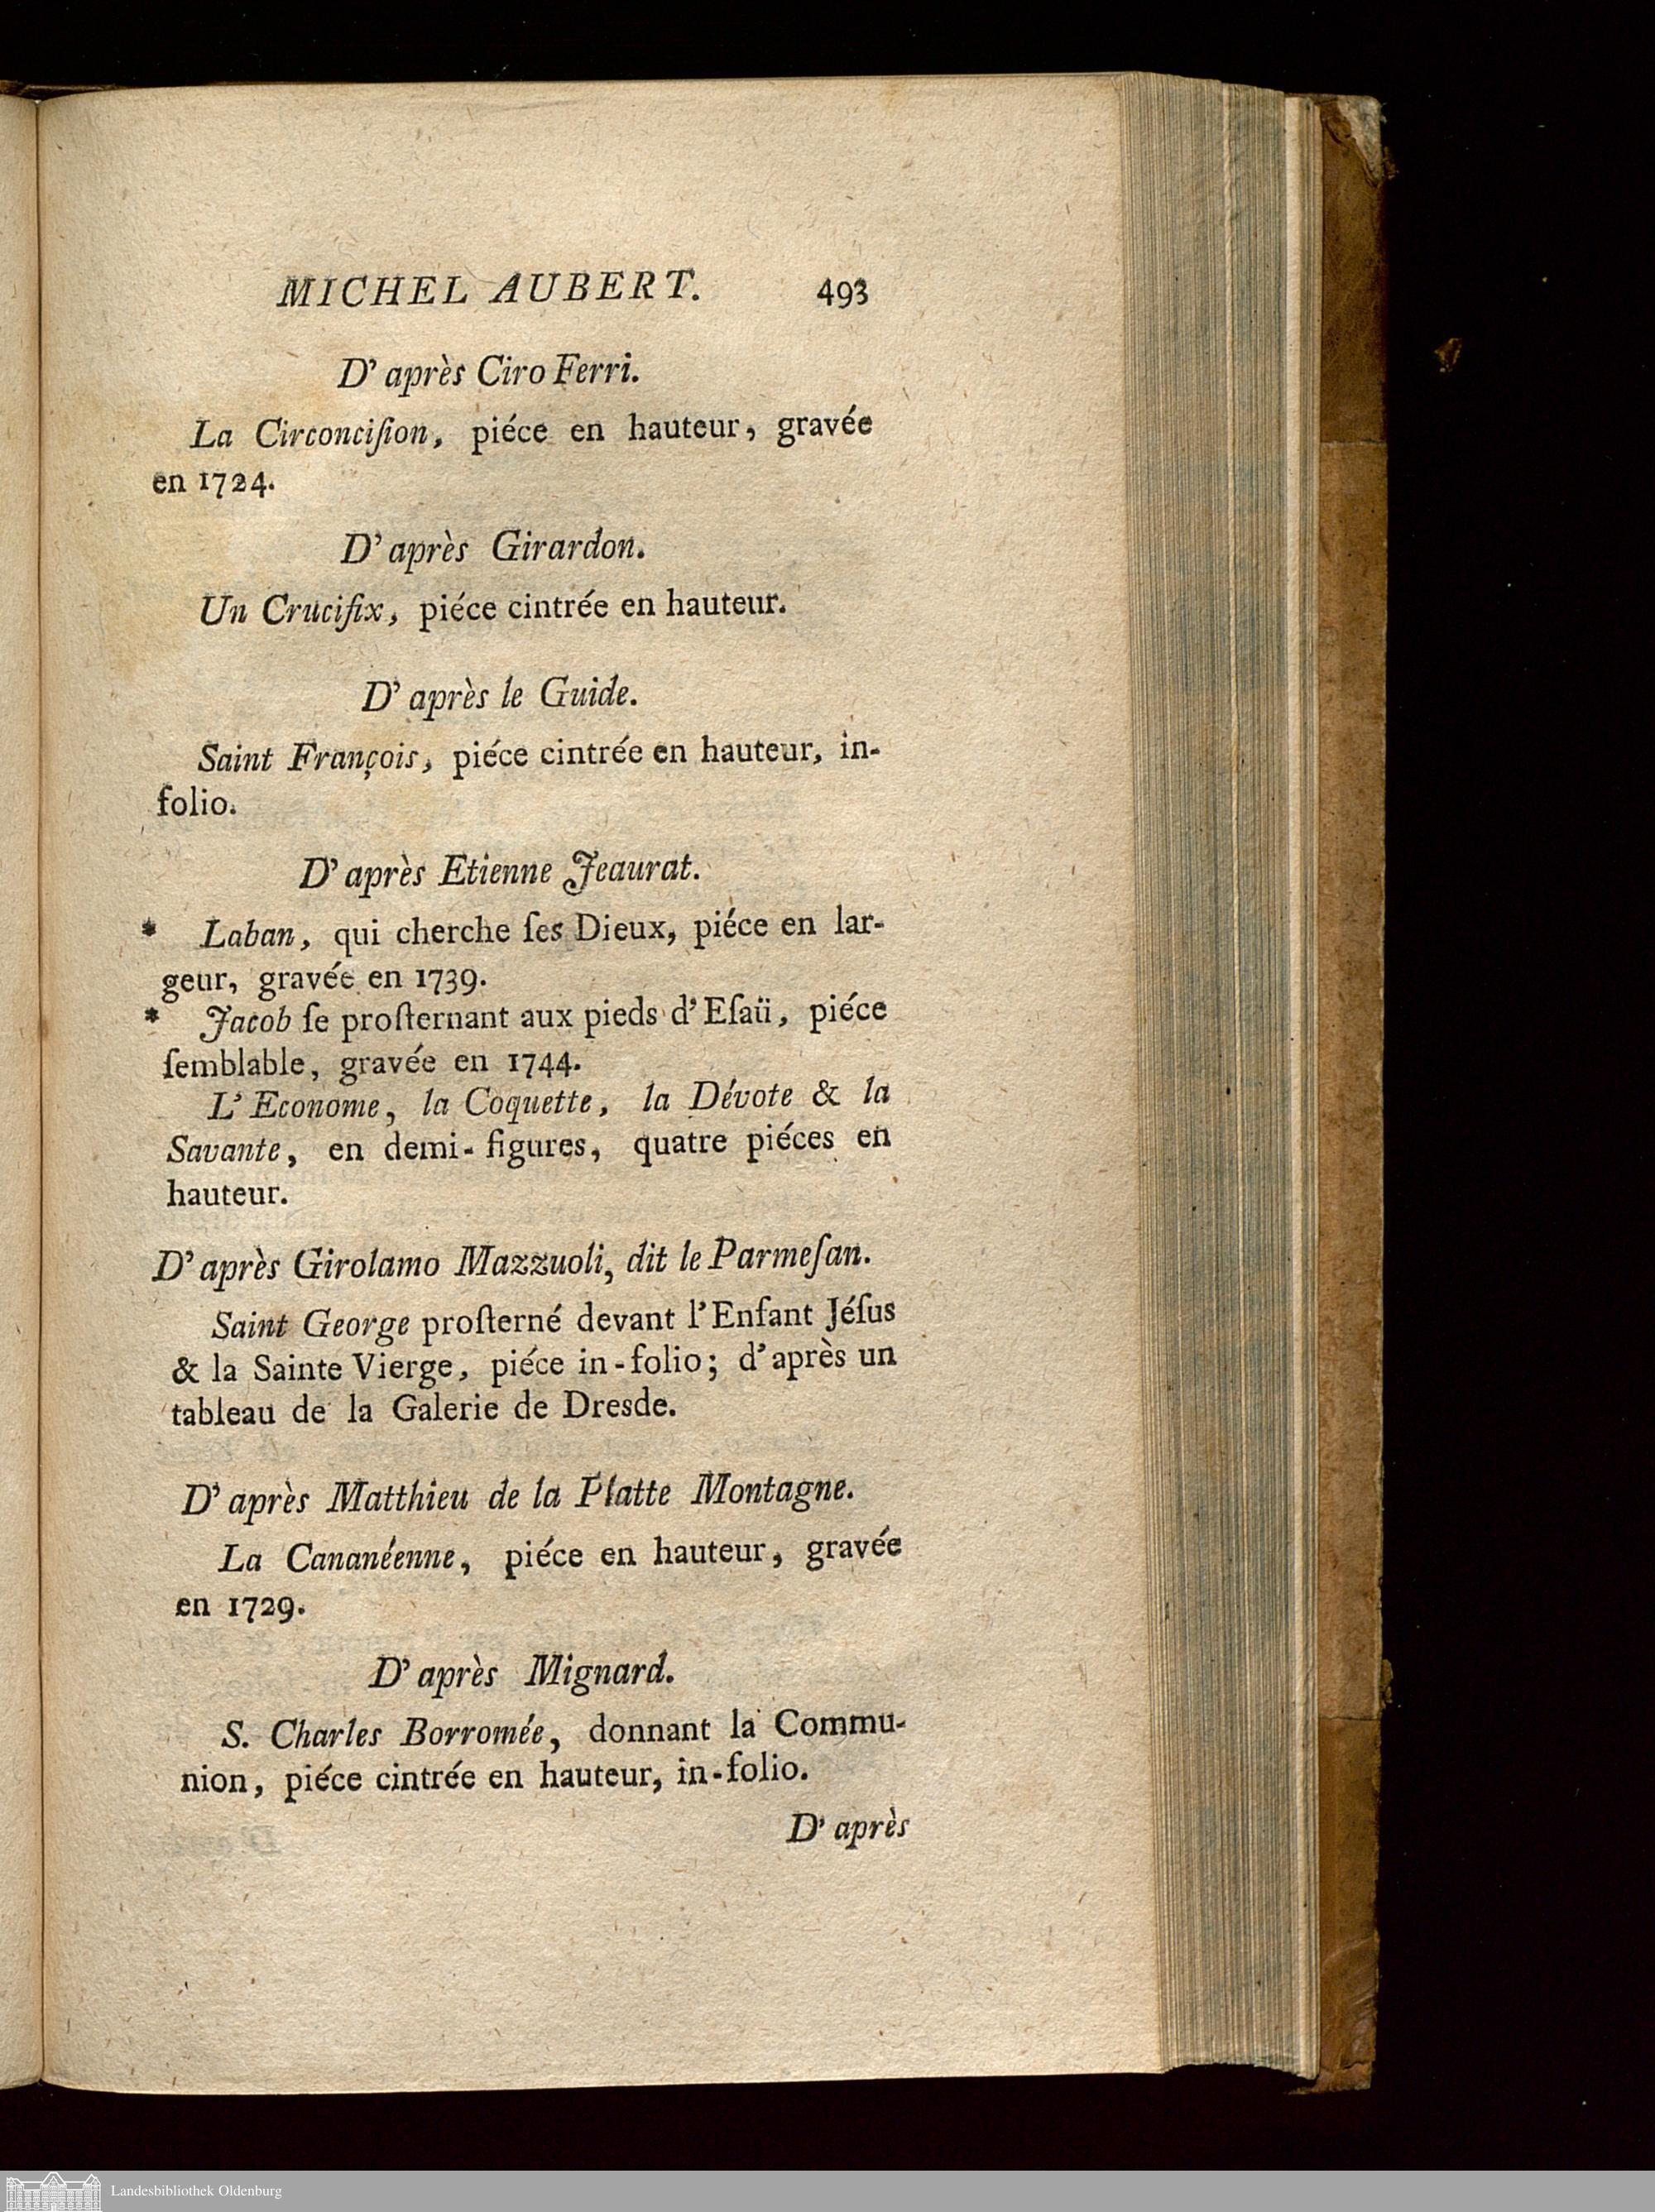 MICHEL AUBERT. 493
D' après Ciro Ferri.
La Circonciſion, piéce en hauteur, gravée
en 1724.
D' après Girardon.
Un Crucifix, piéce cintrée en hauteur.
D' après le Guide.
Saint François, piéce cintrée en hauteur, in-
folio.
D' après Etienne Jeaurat.
* Laban, qui cherche ſes Dieux, piéce en lar-
geur, gravée en 1739.
* Jacob ſe proſternant aux pieds d'Eſaü, piéce
ſemblable, gravée en 1744.
L' Econome, la Coquette, la Dévote & la
Savante, en demi-figures, quatre piéces en
hauteur.
D' après Girolamo Mazzuoli, dit le Parmeſan.
Saint George proſterné devant l'Enfant Jéſus
& la Sainte Vierge, piéce in-folio; d'après un
tableau de la Galerie de Dresde.
D' après Matthieu de la Platte Montagne.
La Cananéenne, piéce en hauteur, gravée
en 1729.
D' après Mignard.
S. Charles Borromée, donnant la Commu-
nion, piéce cintrée en hauteur, in-folio.
D' après
Landesbibliothek Oldenburg